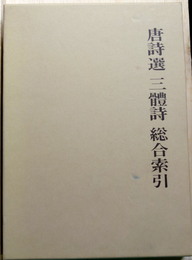 唐詩選 三體詩 総合索引